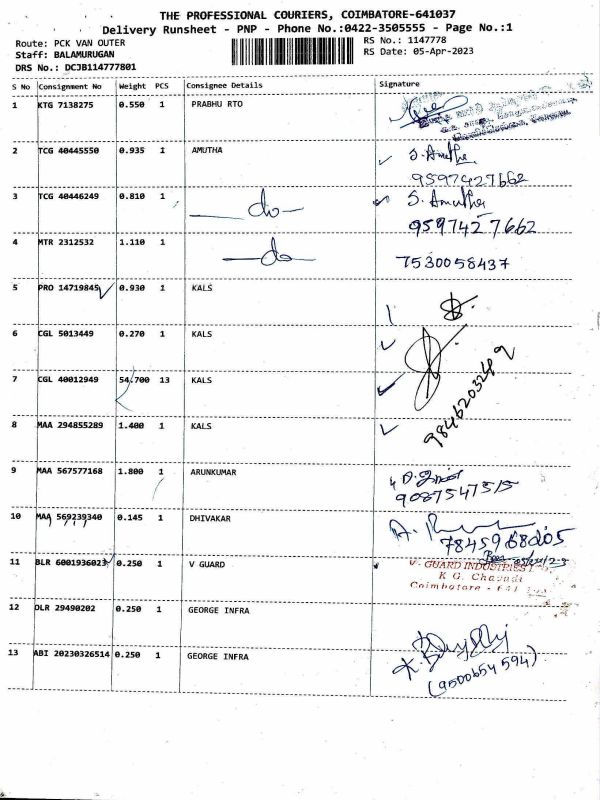 THE PROFESSIONAL COURIERS, COIMBATORE-641037
Delivery Runsheet - PNP - Phone No.:0422-3505555 - Page No.:1
Route: PCK VAN OUTER
RS No.: 1147778
Staff: BALAMURUGAN
RS Date: 05-Apr-2023
DRS No.: DCJB114777801
S No Consignment No Weight PCS Consignee Details Signature
1 KTG 7138275 0.550 1 PRABHU RTO
2 TCG 40445550 0.935 1 AMUTHA S. Amutha
9597427662
3 TCG 40446249 0.810 1 do S. Amutha
9597427662
4 MTR 2312532 1.110 1 do 7530058437
5 PRO 14719845 0.930 1 KALS
6 CGL 5013449 0.270 1 KALS
7 CGL 40012949 54.700 13 KALS
8 MAA 294855289 1.400 1 KALS
9 MAA 567577168 1.800 1 ARUNKUMAR
9087547515
10 MAA 569239340 0.145 1 DHIVAKAR
11 BLR 6001936023 0.250 1 V GUARD
V- GUARD INDUSTRIES
K G. Chavadi
Coimbatore - 641
12 DLR 29490202 0.250 1 GEORGE INFRA
13 ABI 20230326514 0.250 1 GEORGE INFRA
(9500654594)